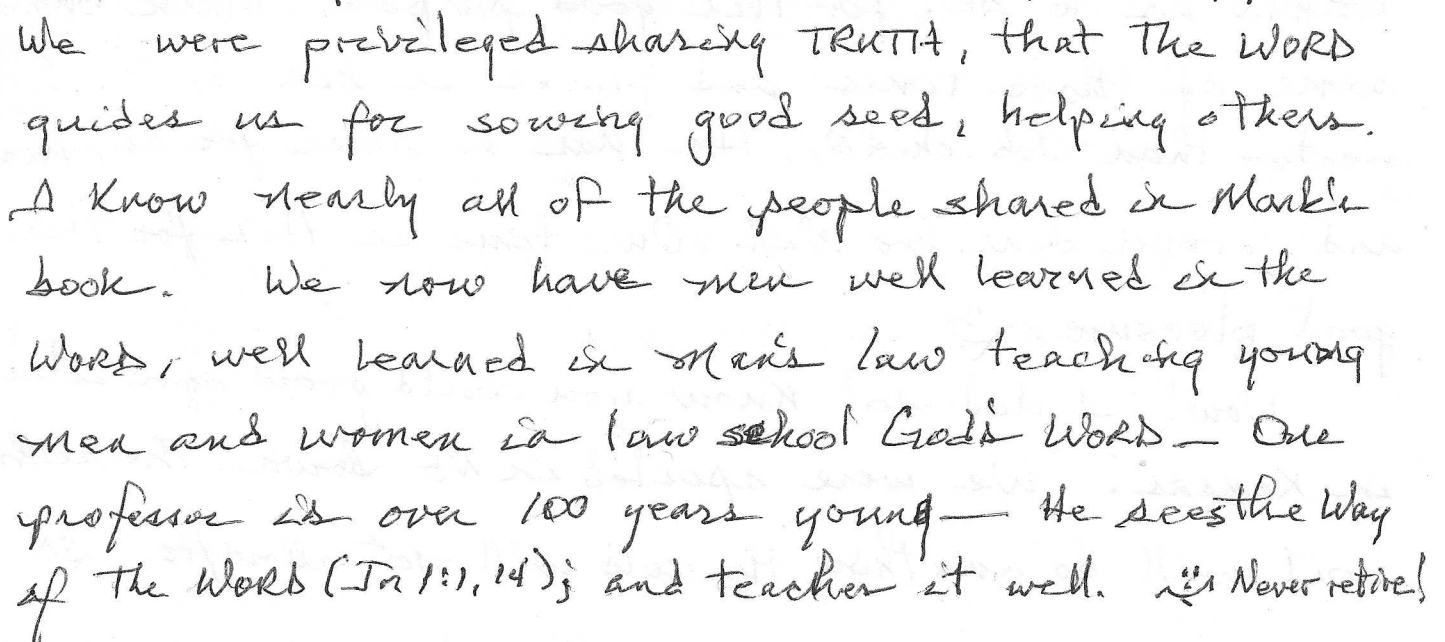 We were privileged sharing TRUTH, that The WORD
guides us for sowing good seed, helping others.
I Know nearly all of the people shared in Mark's
book. We now have men well learned in the
WORD, well learned in Man's law teaching young
men and women in law school God's WORD — One
professor is over 100 years young — He sees the Way
of The WORD (Jn 1:1, 14); and teaches it well. Never retire!